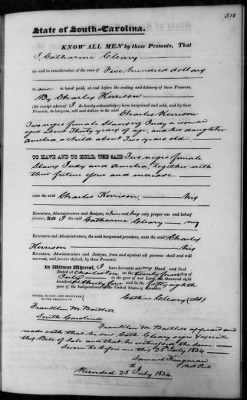 State of South-Carolina.
KNOW ALL MEN by these Presents, That
I Catharine Cleary
for and in consideration of the sum of Five hundred dollars
to me in hand paid, at and before the sealing and delivery of these Presents,
By Charles Kerrison
(the receipt whereof I do hereby acknowledge) have bargained and sold, and by these
Presents, do bargain, sell and deliver to the said
Charles Kerrison
Two negro female Slaves, Judy a woman
and about Thirty years of age, and her daughter
Amelia a child about Two years old
TO HAVE AND TO HOLD, THE SAID Two negro female
Slaves Judy and Amelia, together with
their future issue and increase
unto the said Charles Kerrison, his
Executors, Administrators and Assigns, to his and their only proper use and behoof
forever. And I the said Catharine Cleary my
Executors, Administrators and Assigns, the said bargained premises, unto the said Charles
Kerrison his
Executors, Administrators and Assigns, from and against all persons shall and will
warrant, and forever defend, by these Presents.
In Witness Whereof, I have hereunto set my Hand and Seal
Dated at Charleston on the
July in the year of our Lord one thousand eight
hundred and thirty four and in the fifty eighth
year of the Independence of the United States of America.
SIGNED, SEALED, AND DELIVERED
IN THE PRESENCE OF
Cathrine Cleary (LS)
Franklin M.
South Carolina
Franklin M. appeared and
made oath that he saw Cath Cleary sign & execute
this Bill of Sale and that he witnessed the same
Sworn to before me this 25 July 1834
Samuel Kingman
Recorded 25 July 1834